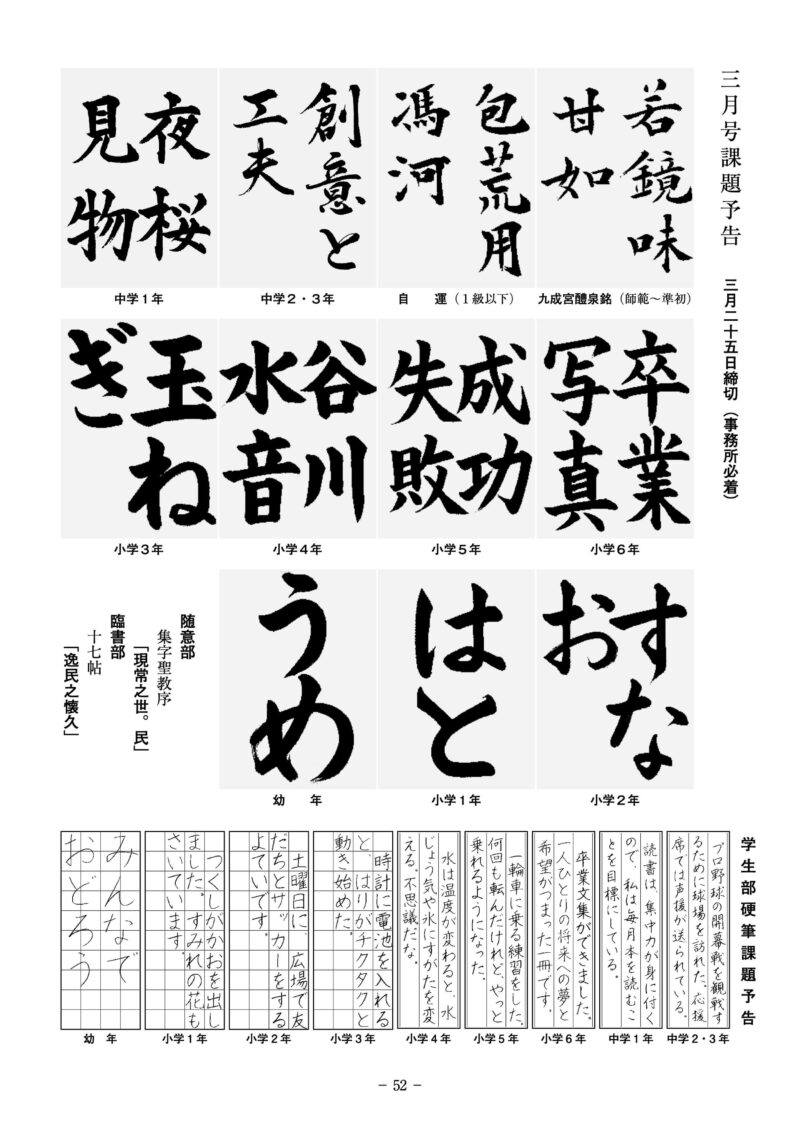 三月号課題予告
三月二十五日締切（事務所必着）
若鏡味
甘如
九成宮醴泉銘（師範～準初）
包荒用
馮河
自　運（１級以下）
創意と
工夫
中学２・３年
夜桜
見物
中学１年
卒業
写真
小学６年
成功
失敗
小学５年
谷川
水音
小学４年
玉ね
ぎ
小学３年
すな
お
小学２年
はと
小学１年
うめ
幼　年
随意部
集字聖教序
「現常之世。民」
臨書部
十七帖
「逸民之懐久」
学生部硬筆課題予告
プロ野球の開幕戦を観戦す
るために球場を訪れた。応援
席では声援が送られている。
中学２・３年
読書は、集中力が身に付く
ので、私は毎月本を読むこ
とを目標にしている。
中学１年
卒業文集ができました。
一人ひとりの将来への夢と
希望がつまった一冊です。
小学６年
一輪車に乗る練習をした。
何回も転んだけれど、やっと
乗れるようになった。
小学５年
水は温度が変わると、水
じょう気や氷にすがたを変
える。不思議だな。
小学４年
時計に電池を入れる
と、はりがチクタクと
動き始めた。
小学３年
土曜日に、広場で友
だちとサッカーをする
よていです。
小学２年
つくしがかおを出し
ました。すみれの花も
さいています。
小学１年
みんなで
おどろう
幼　年
－ 52 －